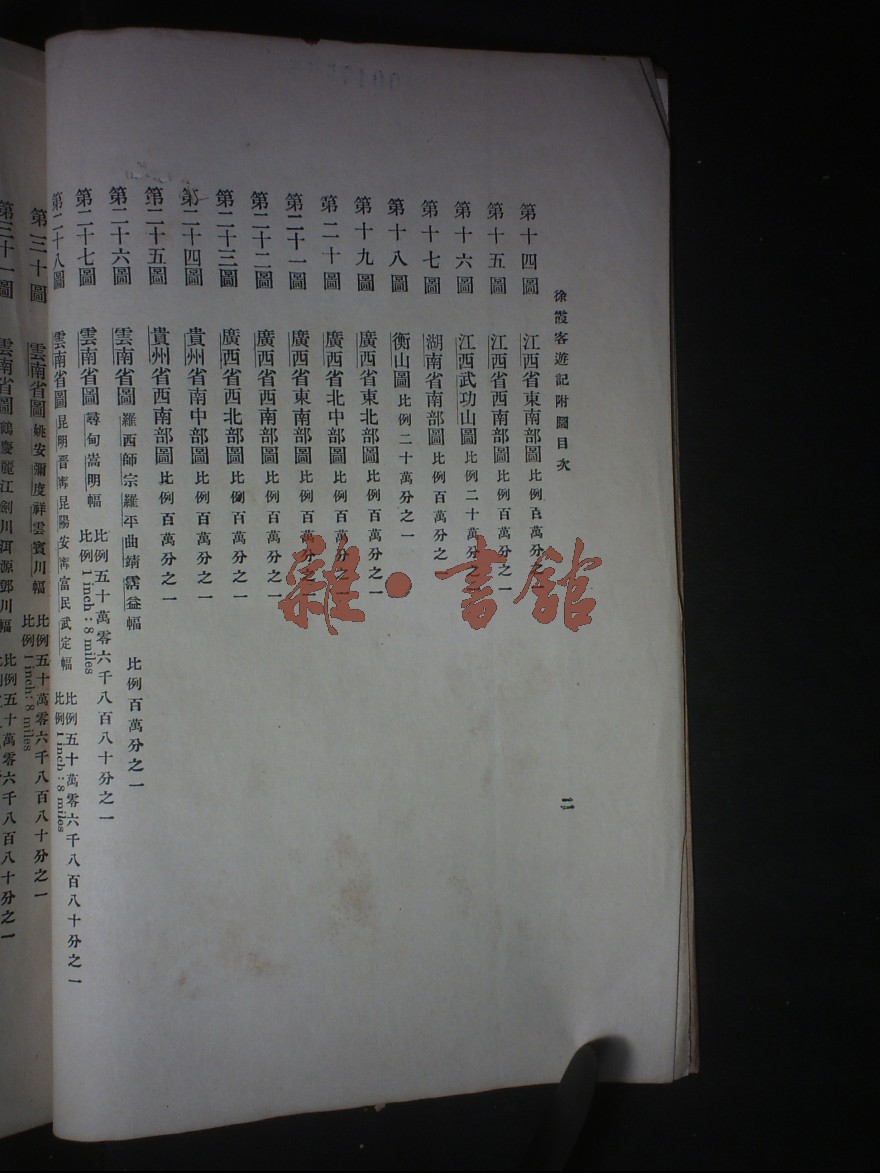 徐霞客遊記附圖目次
二
第十四圖 江西省東南部圖 比例百萬分之一
第十五圖 江西省西南部圖 比例百萬分之一
第十六圖 江西武功山圖 比例二十萬分之一
第十七圖 湖南省南部圖 比例百萬分之一
第十八圖 衡山圖 比例二十萬分之一
第十九圖 廣西省東北部圖 比例百萬分之一
第二十圖 廣西省北中部圖 比例百萬分之一
第二十一圖 廣西省東南部圖 比例百萬分之一
第二十二圖 廣西省西南部圖 比例百萬分之一
第二十三圖 廣西省西北部圖 比例百萬分之一
第二十四圖 貴州省南中部圖 比例百萬分之一
第二十五圖 貴州省西南部圖 比例百萬分之一
第二十六圖 雲南省圖 羅西師宗羅平曲靖霑益幅 比例百萬分之一
第二十七圖 雲南省圖 尋甸嵩明幅 比例五十萬零六千八百八十分之一
比例 1 inch : 8 miles
第二十八圖 雲南省圖 昆明晋寗昆陽安寗富民武定幅 比例五十萬零六千八百八十分之一
比例 1 inch : 8 miles
第三十圖 雲南省圖 姚安彌度祥雲賓川幅 比例五十萬零六千八百八十分之一
比例 1 inch : 8 miles
第三十一圖 雲南省圖 鶴慶麗江劍川洱源鄧川幅 比例五十萬零六千八百八十分之一
雜·書館